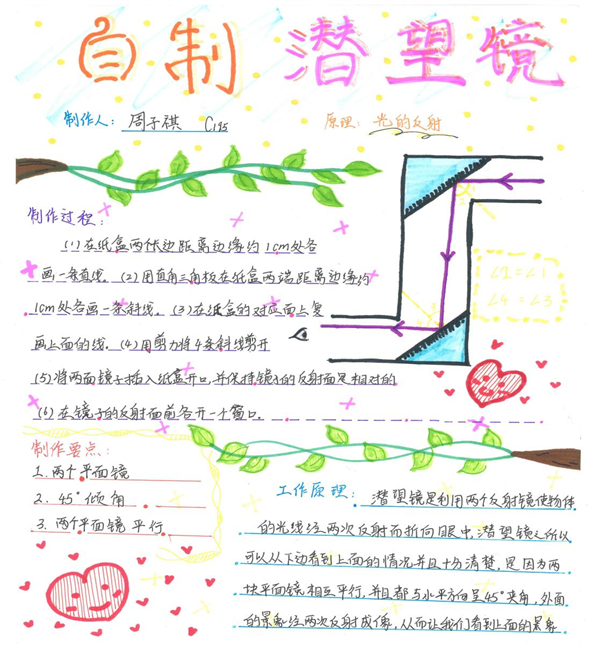 自制潜望镜
制作人: 周子祺 C195
原理: 光的反射
制作过程:
(1)在纸盒两侧边距离边缘约1cm处各
画一条直线。(2)用直角三角板在纸盒两端距离边缘约
1cm处各画一条斜线。(3)在纸盒的对应面上复
画上面的线。(4)用剪力将4条斜线剪开
(5)将两面镜子插入纸盒开口,并保持镜子的反射面是相对的
(6)在镜子的反射面前各开一个窗口。
∠2=∠1
∠4=∠3
制作要点:
1.两个平面镜
2.45°倾角
3.两个平面镜平行
工作原理: 潜望镜是利用两个反射镜使物体
的光线经两次反射而折向眼中,潜望镜之所以
可以从下边看到上面的情况并且十分清楚,是因为两
块平面镜相互平行,并且都与水平方向呈45°夹角,外面
的景象经两次反射成像,从而让我们看到上面的景象